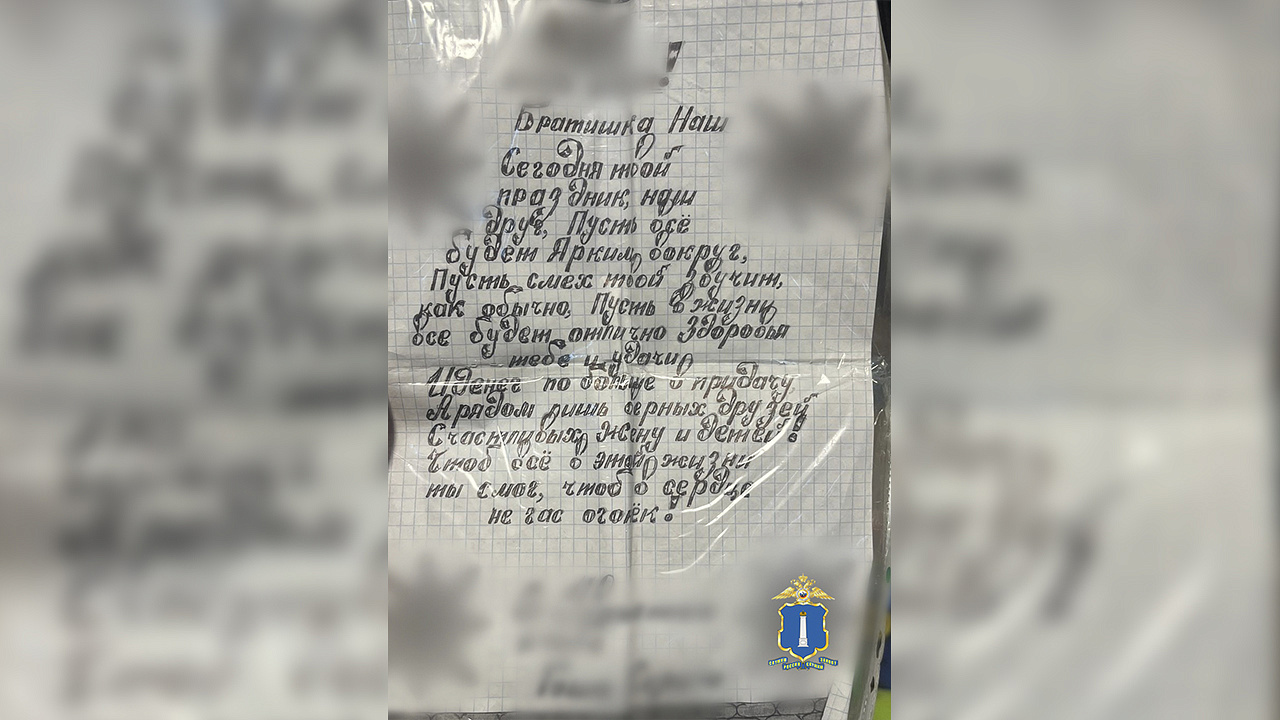 !
Братишка Наш
Сегодня твой
праздник, наш
друг, Пусть всё
будет Ярким, вокруг,
Пусть смех твой звучит,
как обычно, Пусть в жизни
все будет отлично Здоровья
тебе и удачи
И денег по больше в придачу
А рядом лишь верных друзей
Счастливых, Жену и детей!
Чтоб всё в этой жизни
ты смог, чтоб в сердце
не гас огонёк!
СЛУЖИМ РОССИИ СЛУЖИМ ЗАКОНУ